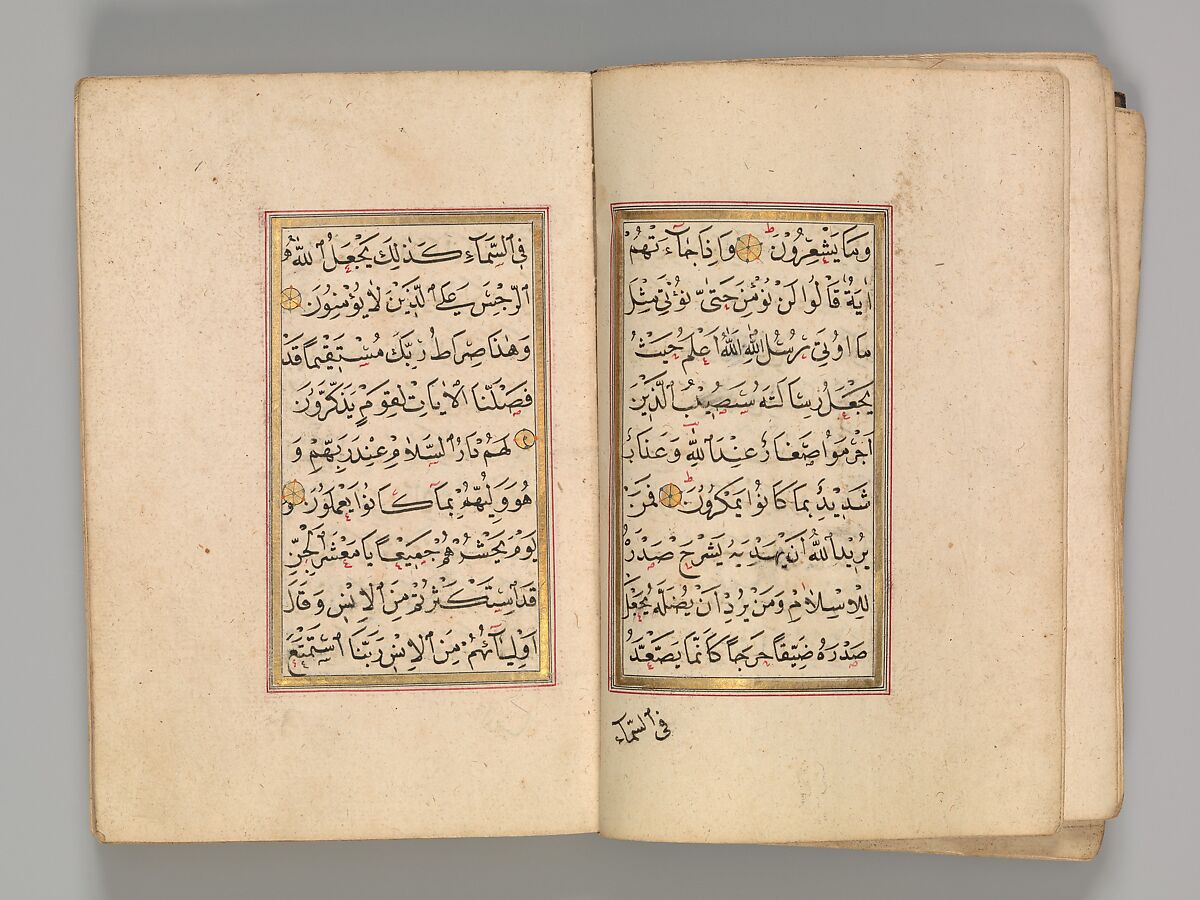 وَمَا يَشْعُرُونَ وَاِذَا جَاءَتْهُمْ
اٰيَةٌ قَالُوا لَنْ نُؤْمِنَ حَتّٰى نُؤْتٰى مِثْلَ
مَا اُوتِىَ رُسُلُ اللّٰهِ اَللّٰهُ اَعْلَمُ حَيْثُ
يَجْعَلُ رِسَالَتَهُ سَيُصِيبُ الَّذِينَ
اَجْرَمُوا صَغَارٌ عِنْدَ اللّٰهِ وَعَذَابٌ
شَدِيدٌ بِمَا كَانُوا يَمْكُرُونَ فَمَنْ
يُرِدِ اللّٰهُ اَنْ يَهْدِيَهُ يَشْرَحْ صَدْرَهُ
لِلْاِسْلَامِ وَمَنْ يُرِدْ اَنْ يُضِلَّهُ يَجْعَلْ
صَدْرَهُ ضَيِّقًا حَرَجًا كَاَنَّمَا يَصَّعَّدُ
فِى السَّمَاءِ
فِى السَّمَاءِ كَذٰلِكَ يَجْعَلُ اللّٰهُ
الرِّجْسَ عَلَى الَّذِينَ لَا يُؤْمِنُونَ
وَهٰذَا صِرَاطُ رَبِّكَ مُسْتَقِيمًا قَدْ
فَصَّلْنَا الْاٰيَاتِ لِقَوْمٍ يَذَّكَّرُونَ
لَهُمْ دَارُ السَّلَامِ عِنْدَ رَبِّهِمْ وَ
هُوَ وَلِيُّهُمْ بِمَا كَانُوا يَعْمَلُونَ وَ
يَوْمَ يَحْشُرُهُمْ جَمِيعًا يَا مَعْشَرَ الْجِنِّ
قَدِ اسْتَكْثَرْتُمْ مِنَ الْاِنْسِ وَقَالَ
اَوْلِيَاؤُهُمْ مِنَ الْاِنْسِ رَبَّنَا اسْتَمْتَعَ